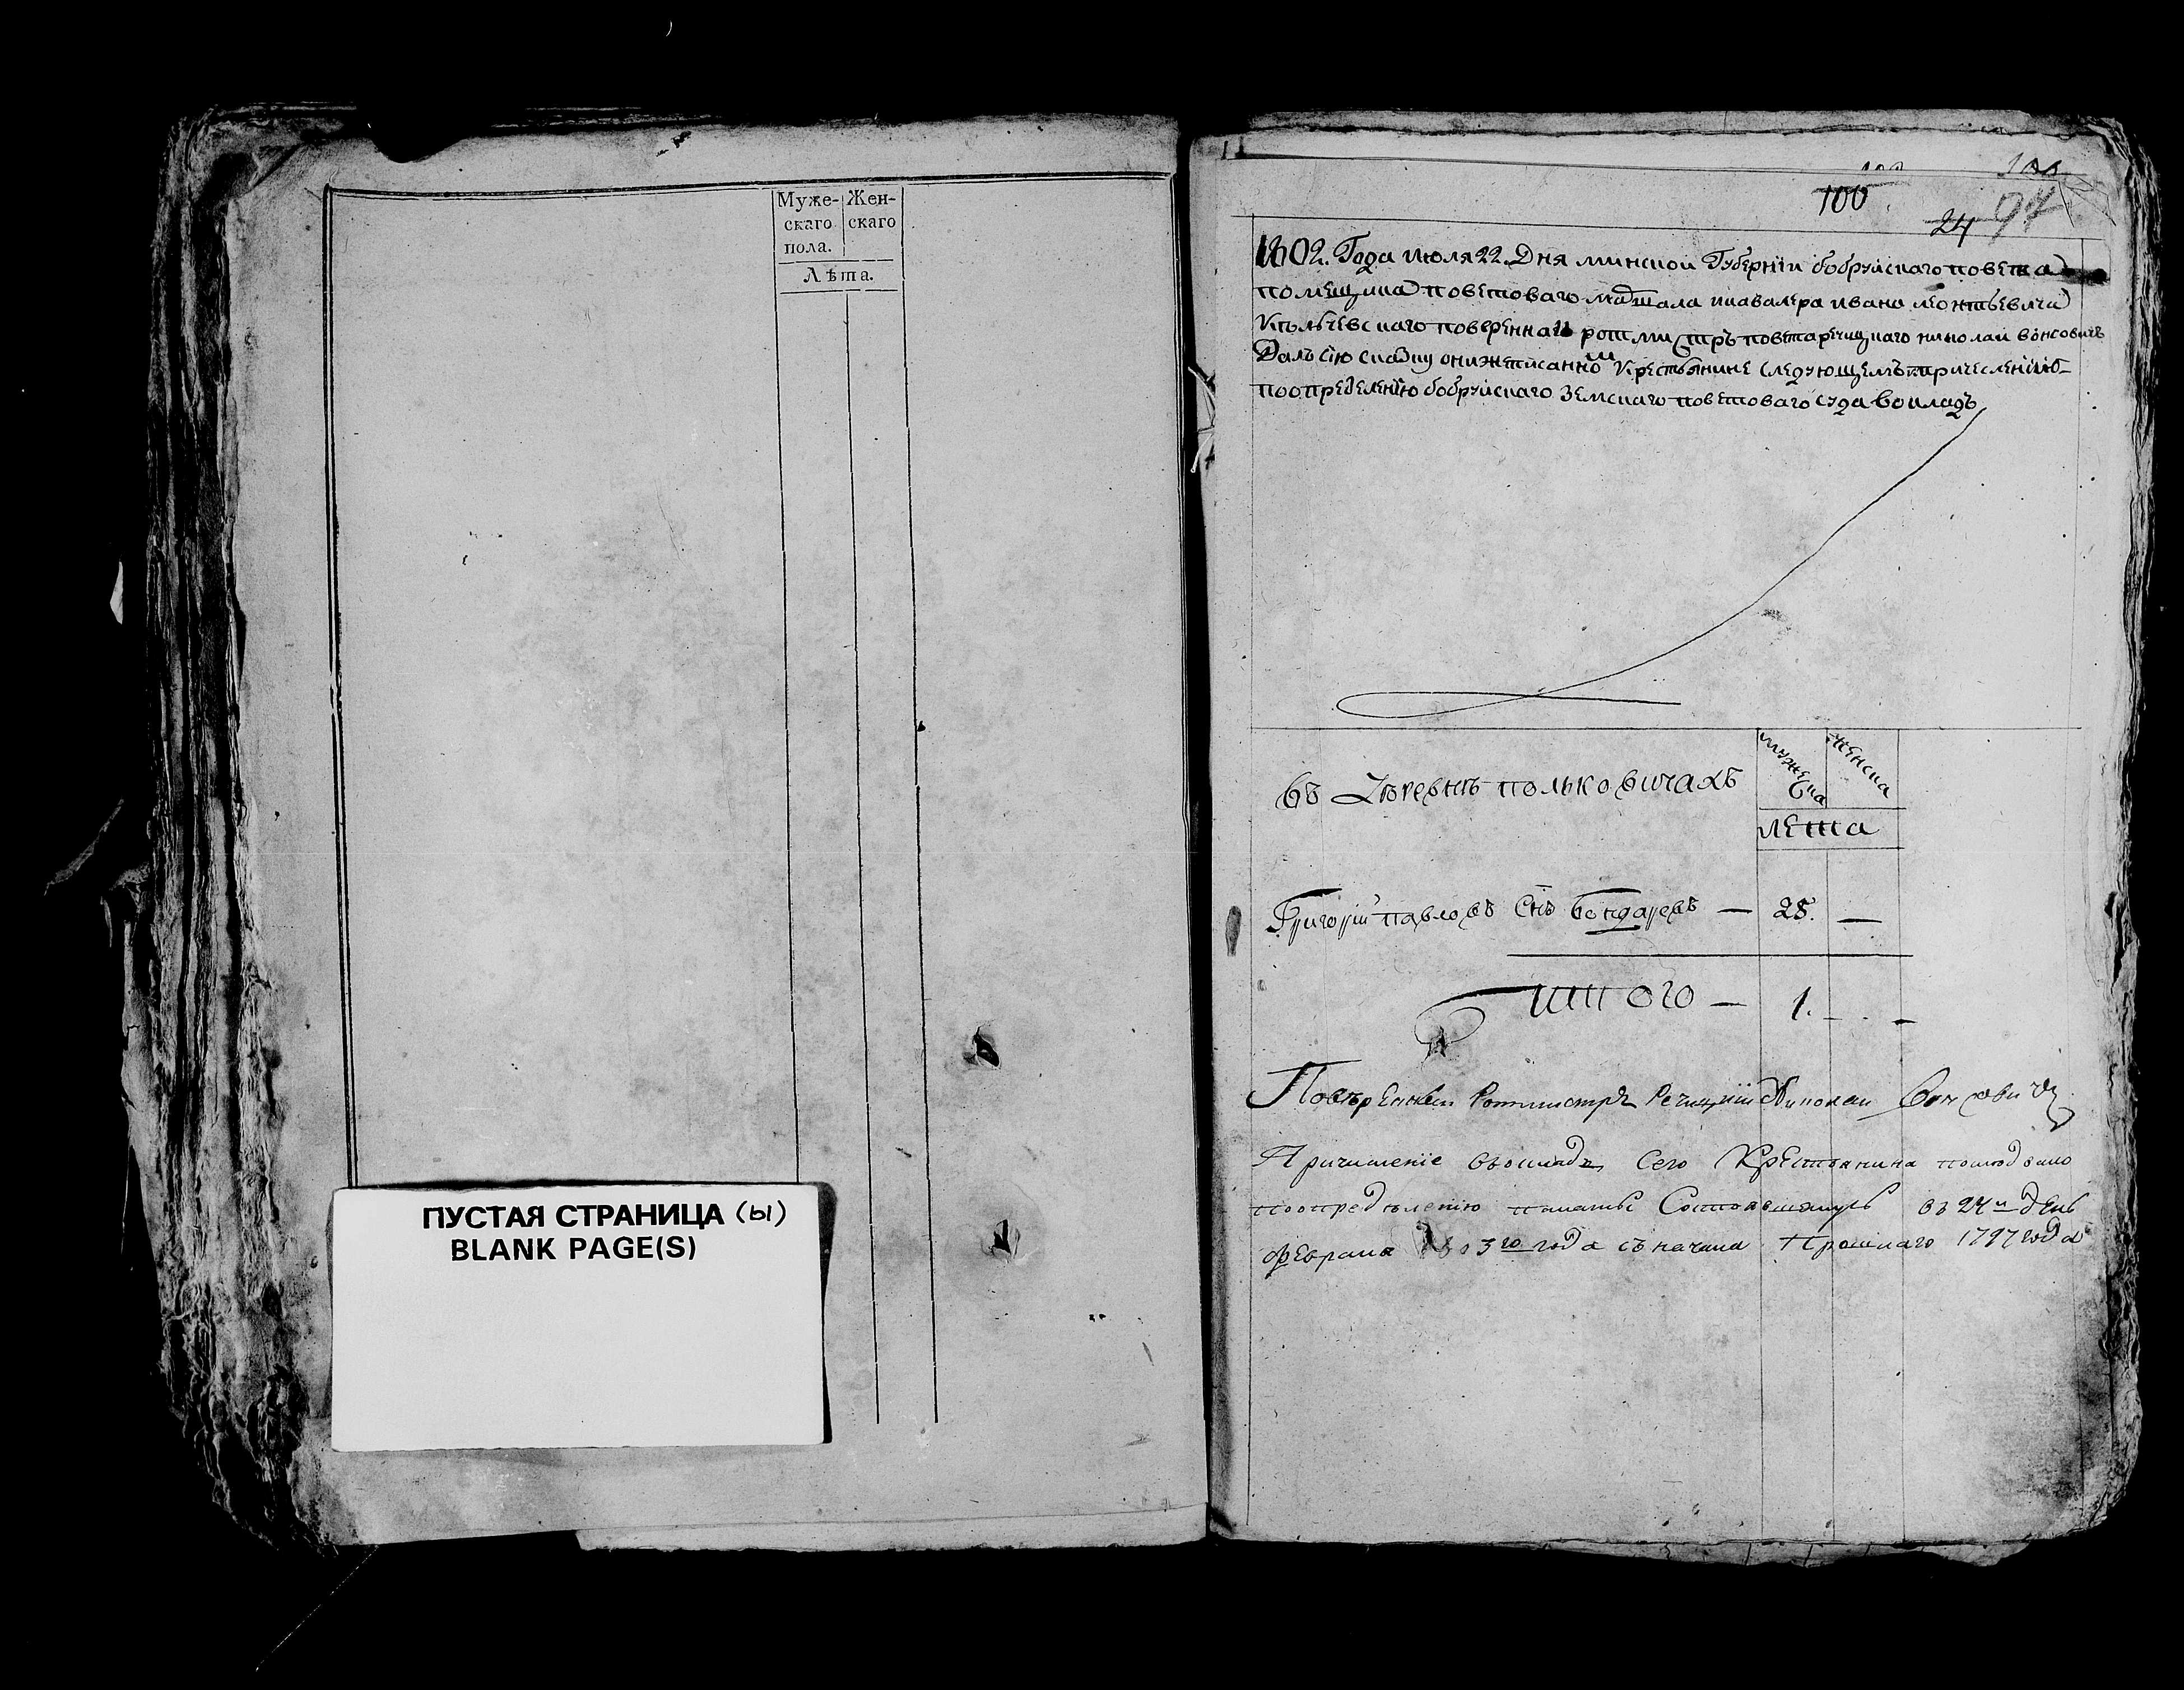 Муже-
скаго
пола.
Жен-
скаго
Лѣта.
ПУСТАЯ СТРАНИЦА (ы)
BLANK PAGE(S)
100
24 97
1802. Года июля 22. Дня минской Губернїи бобруйскаго повета
помещика поветоваго маршала икавалера ивана леонтьевича
поверенный ротмистръ повета речицкаго николай вонсовичъ
Далъ сїю скаску онижеписанном крестьянине следующемъ причеслению
поопределению бобруйскаго Земскаго поветоваго суда вокладъ
въ Деревнѣ польковичахъ
мужеска
женска
лета
Григорїй павловъ Снъ бондаревъ — 28. —
итого — 1. — . —
Повѣренный Ротмистръ Речицкїй Николай Вонсовичъ
Причисленїе вокладъ Сего Крестьянина
поопредѣленїю палаты Состоявшемусь въ 24й день
февраля 1803го года съ начала Прошлаго 1797 года